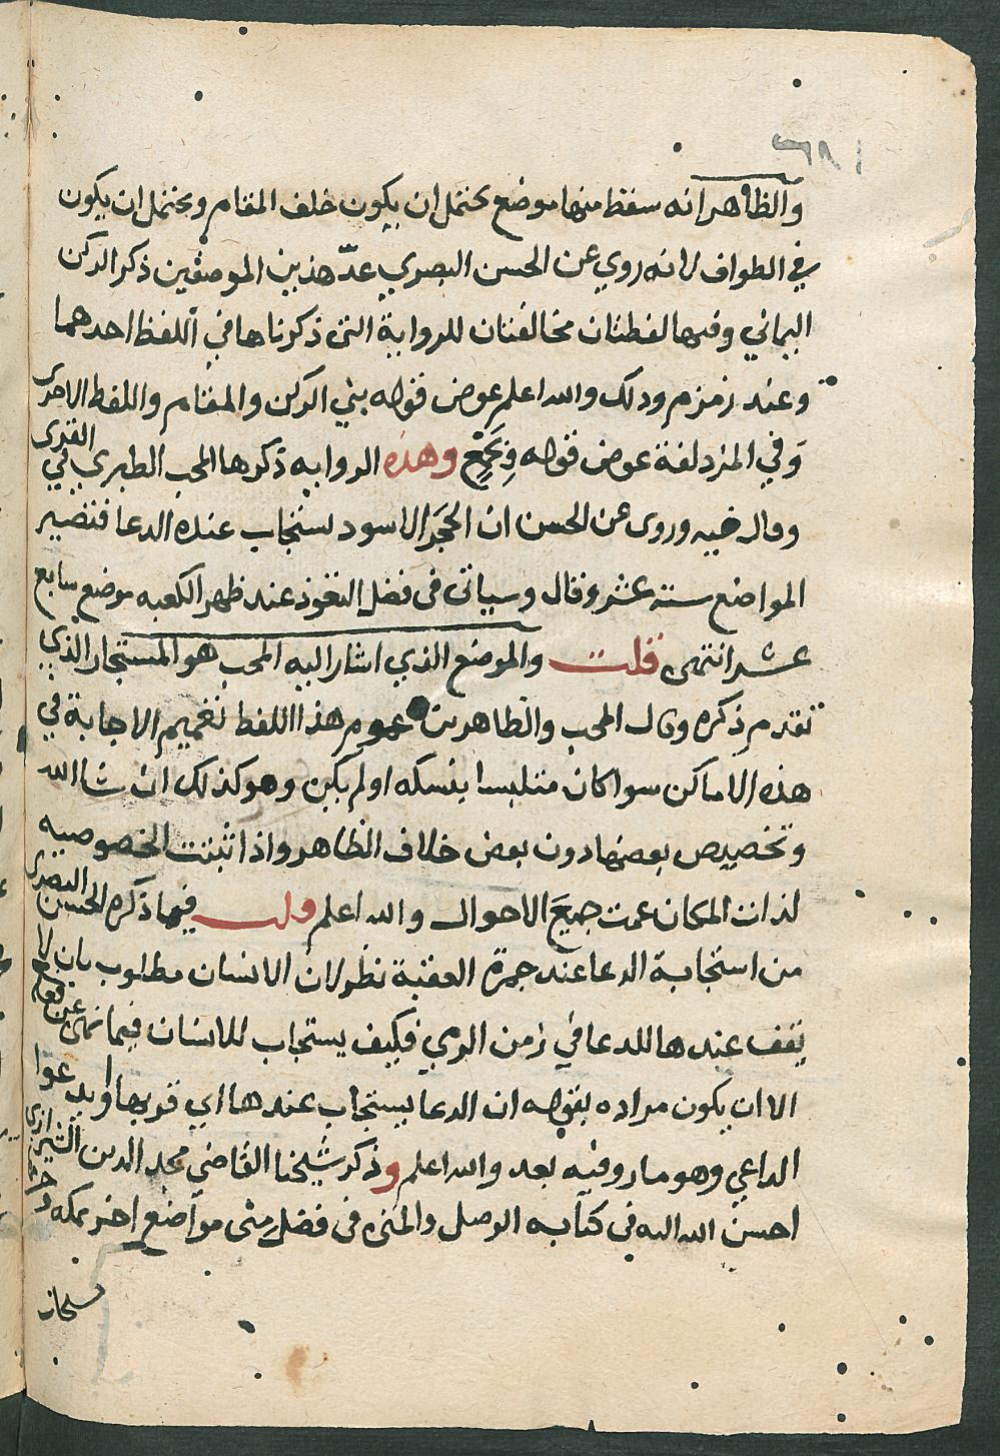 والظاهر انه سقط منها موضع يحتمل ان يكون خلف المقام ويحتمل ان يكون
في الطواف لانه روي عن الحسن البصري عدّ هذين الموضعين ذكر الركن
اليماني وفيها لفظتان مخالفتان للرواية التى ذكرناها في اللفظ احدهما
وعند زمزم وذلك والله اعلم عوض قوله بين الركن والمقام واللفظ الاخرى
وَفي المزدلفة عوض قوله وفي جَمْعٍ وهذه الروايه ذكرها المحب الطبري في القرى
وقال فيه وروى عن الحسن ان الحجَر الاسود يستجاب عنده الدعا فتصير
المواضع ستة عشر وقال وسياتى فى فضل التعوذ عند ظهر الكعبه موضع سابع
عشر انتهى قلت والموضع الذي اشار اليه المحب هو المستجار الذي
تقدم ذكره وقال المحب والظاهر من عموم هذا اللفظ تعميم الاجابة في
هذه الاماكن سوا كان متلبسا بنسكه او لم يكن وهو كذلك ان شا الله
وتخصيص بعضها دون بعض خلاف الظاهر واذا ثبتت الخصوصيه
لذات المكان عمت جميعَ الاحوال والله اعلم قلت فيما ذكره الحسن البصرى
من استجابة الدعا عند جمرة العقبة نظر لان الانسان مطلوب بان لا
يقف عندها للدعا في زمن الرمي فكيف يستجاب للانسان فيما نهى عن
الا ان يكون مراده بقوله ان الدعا يستجاب عندها اي قربها ويدعوا
الداعي وهو مار وفيه بعد والله اعلم وذكر شيخنا القاضي مجد الدين الشيرازى
احسن الله اليه فى كتابه الوصل والمنى فى فضل منى مواضع اخر بمكه